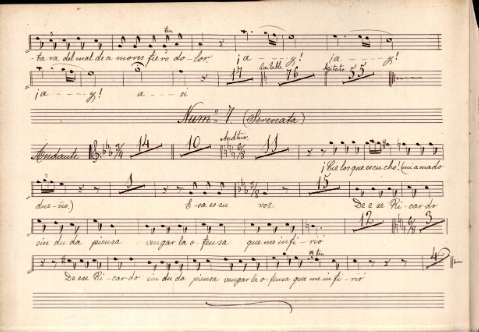 ta ra del mal de a mores fiero do-lor ¡a---y! ¡a---y!
17 76 Agitato 55
¡a---y! a--si
Num.º 7 (Serenata)
Andante 14 10 11
¡Cie los que escu cho! (mi amado
due-ño) 1 E-ra es su voz 15 De e se Ri-car do
12 3
sin du da piensa vengar la o-fensa que me in fi-rió
4
De ese Ri-car-do sin du da piensa vengar la o-fensa que me in fi-rió